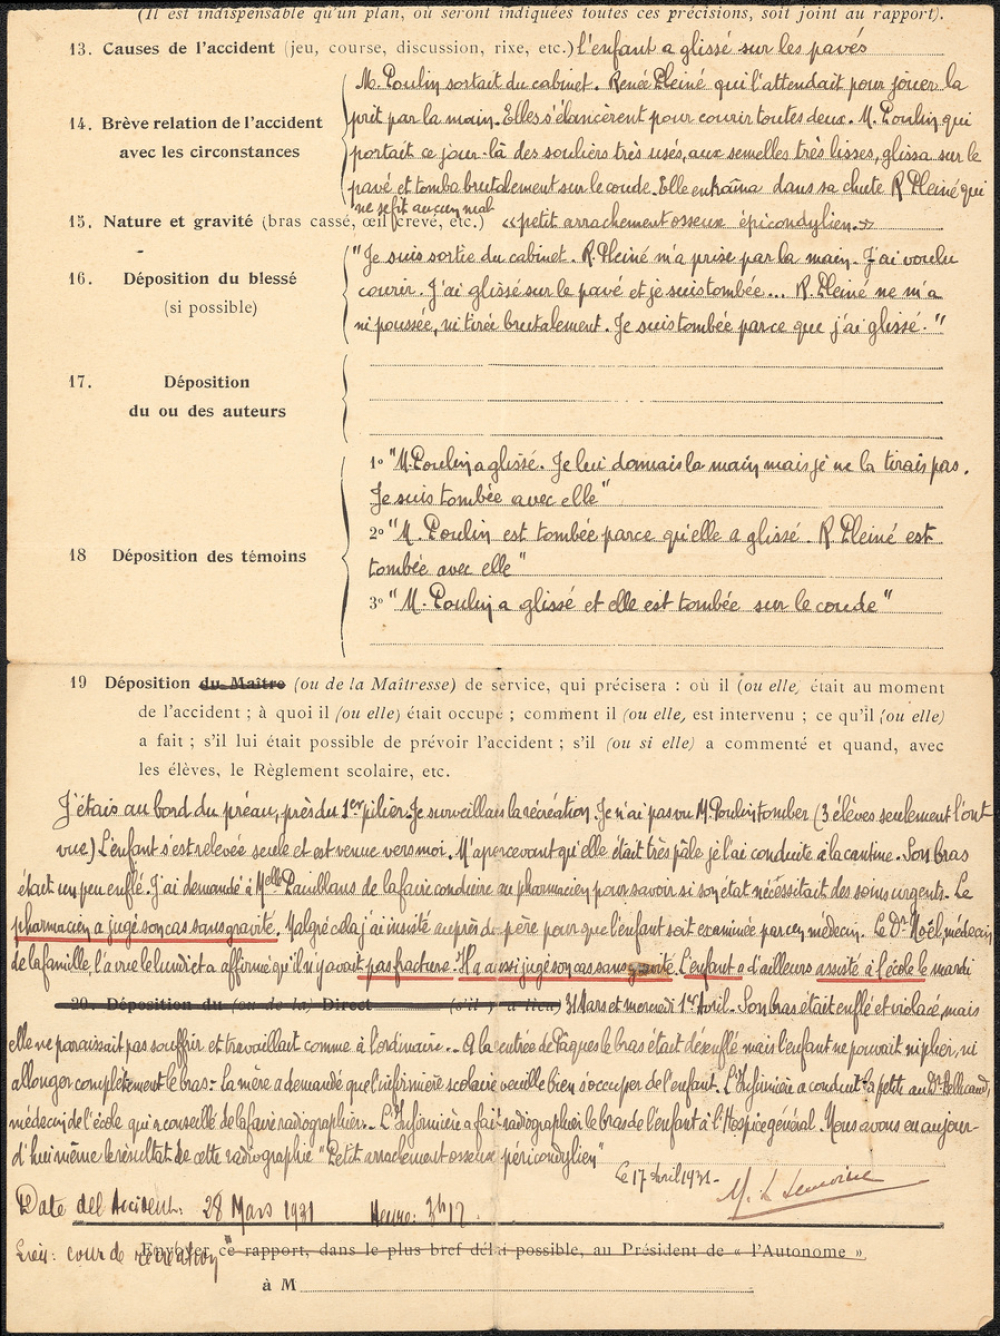 (Il est indispensable qu'un plan, où seront indiquées toutes ces précisions, soit joint au rapport).
13. Causes de l'accident (jeu, course, discussion, rixe, etc.) l'enfant a glissé sur les pavés
M. Poulin sortait du cabinet. Renée Pleiné qui l'attendait pour jouer la
14. Brève relation de l'accident avec les circonstances
prit par la main. Elles s'élancèrent pour courir toutes deux. M. Poulin qui
portait ce jour-là des souliers très usés, aux semelles très lisses, glissa sur le
pavé et tomba brutalement sur le coude. Elle entraîna dans sa chute R. Pleiné qui
ne se fit aucun mal
15. Nature et gravité (bras cassé, œil crevé, etc.) «petit arrachement osseux épicondylien.»
16. Déposition du blessé
(si possible)
"Je suis sortie du cabinet. R. Pleiné m'a prise par la main. J'ai voulu
courir. J'ai glissé sur le pavé et je suis tombée... R. Pleiné ne m'a
ni poussée, ni tirée brutalement. Je suis tombée parce que j'ai glissé."
17. Déposition
du ou des auteurs
18 Déposition des témoins
1º "M. Poulin a glissé. Je lui donnais la main mais je ne la tirais pas.
Je suis tombée avec elle"
2º "M. Poulin est tombée parce qu'elle a glissé. R. Pleiné est
tombée avec elle"
3º "M. Poulin a glissé et elle est tombée sur le coude"
19 Déposition du Maître (ou de la Maîtresse) de service, qui précisera : où il (ou elle, était au moment
de l'accident ; à quoi il (ou elle) était occupé ; comment il (ou elle, est intervenu ; ce qu'il (ou elle)
a fait ; s'il lui était possible de prévoir l'accident ; s'il (ou si elle) a commenté et quand, avec
les élèves, le Règlement scolaire, etc.
J'étais au bord du préau, près du 1er pilier. Je surveillais la récréation. Je n'ai pas vu M. Poulin tomber (3 élèves seulement l'ont
vue) L'enfant s'est relevée seule et est venue vers moi. M'apercevant qu'elle était très pâle je l'ai conduite à la cantine. Son bras
était un peu enflé. J'ai demandé à Melle de la faire conduire au pharmacien pour savoir si son état nécessitait des soins urgents. Le
pharmacien a jugé son cas sans gravité. Malgré cela j'ai insisté auprès du père pour que l'enfant soit examinée par un médecin. Le Dr Noël, médecin
de la famille, l'a vue le lundi et a affirmé qu'il n'y avait pas fracture. Il a aussi jugé son cas sans gravité. L'enfant a d'ailleurs assisté à l'école le mardi
20. Déposition du (ou de la) Direct (s'il y a lieu) 31 Mars et mercredi 1er Avril. Son bras était enflé et violacé, mais
elle ne paraissait pas souffrir et travaillait comme à l'ordinaire.. A la rentrée de Pâques le bras était désenflé mais l'enfant ne pouvait ni plier, ni
allonger complètement le bras. La mère a demandé que l'infirmière scolaire veuille bien s'occuper de l'enfant. L'Infirmière a conduit la petite au Dr
médecin de l'école qui a conseillé de la faire radiographier.. L'Infirmière a fait radiographier le bras de l'enfant à l'Hospice général. Nous avons eu aujour-
d'hui même le résultat de cette radiographie "Petit arrachement osseux péricondylien"
Le 17 Avril 1931.
Date del Accident: 28 Mars 1931 Heure: 3h17.
Lieu: cour de récréation"
Envoyer ce rapport, dans le plus bref délai possible, au Président de « l'Autonome »
à M